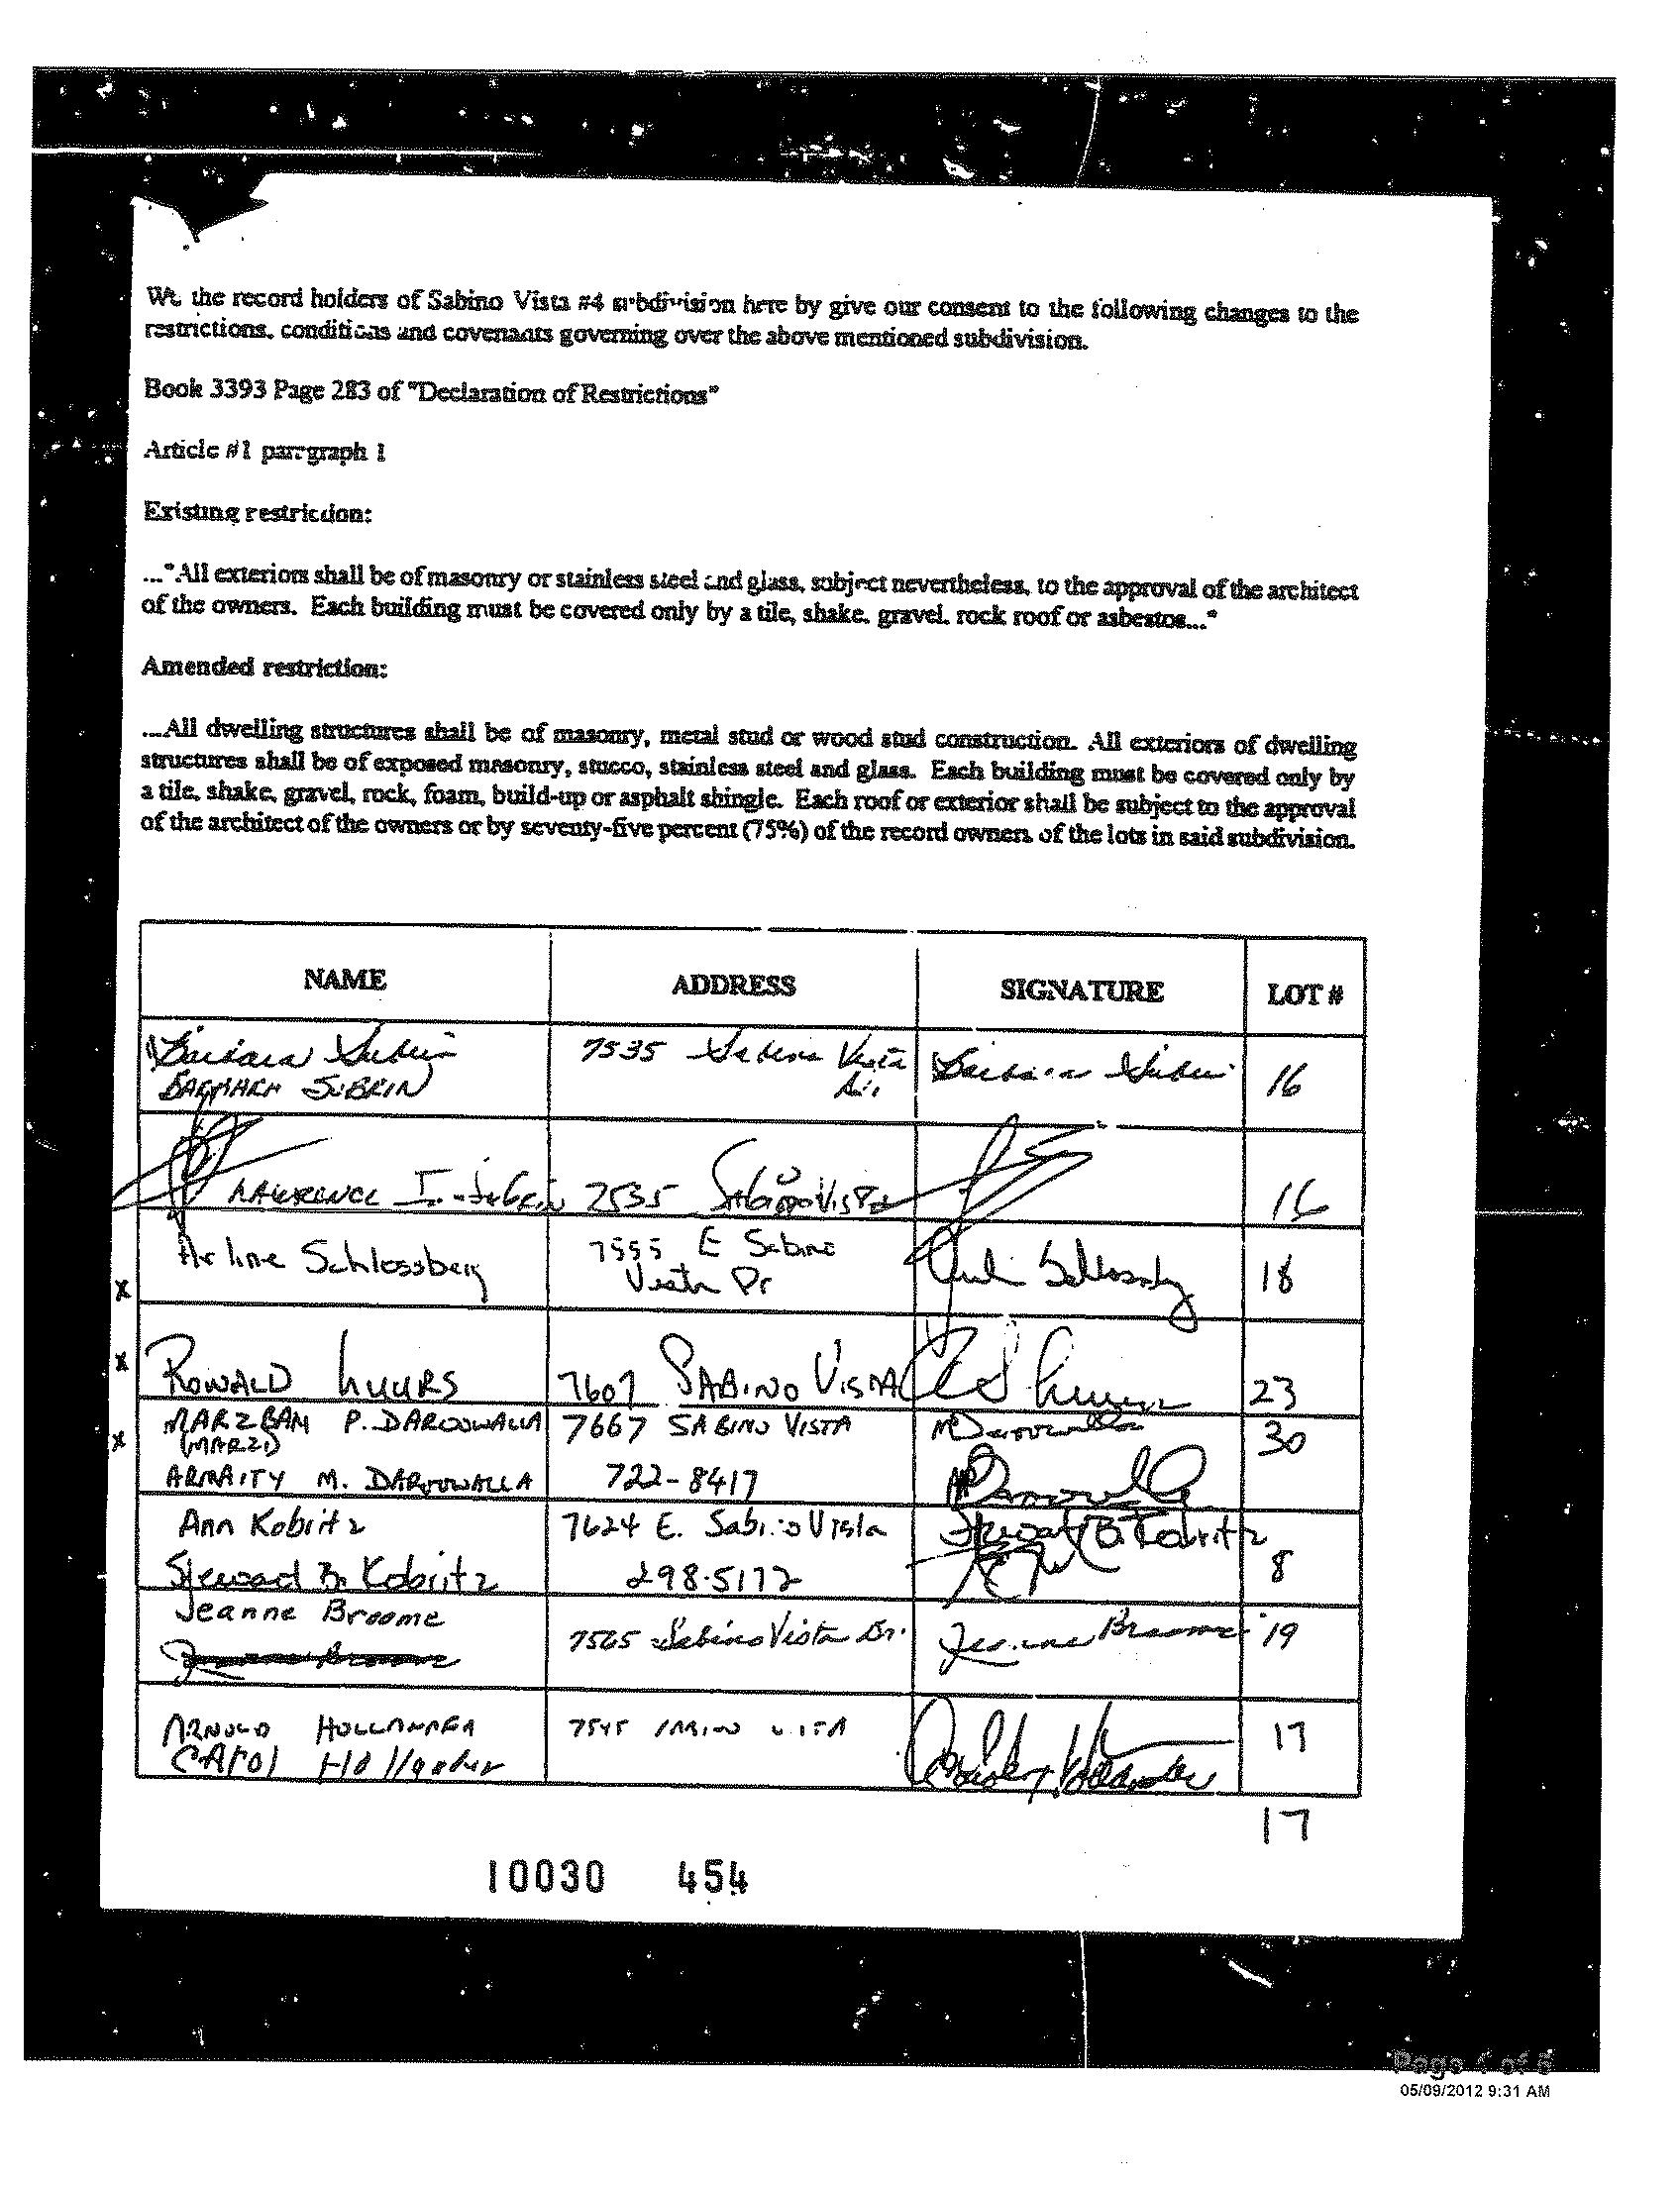 We, the record holders of Sabino Vista #4 subdivision here by give our consent to the following changes to the
restrictions, conditions and covenants governing over the above mentioned subdivision.
Book 3393 Page 283 of "Declaration of Restrictions"
Article #1 paragraph 1
Existing restriction:
..."All exteriors shall be of masonry or stainless steel and glass, subject nevertheless, to the approval of the architect
of the owners. Each building must be covered only by a tile, shake, gravel, rock roof or asbestos..."
Amended restriction:
...All dwelling structures shall be of masonry, metal stud or wood stud construction. All exteriors of dwelling
structures shall be of exposed masonry, stucco, stainless steel and glass. Each building must be covered only by
a tile, shake, gravel, rock, foam, build-up or asphalt shingle. Each roof or exterior shall be subject to the approval
of the architect of the owners or by seventy-five percent (75%) of the record owners of the lots in said subdivision.
NAME ADDRESS SIGNATURE LOT #
Barbara Subrin 7535 Sabino Vista Barbara Subrin 16
BARBARA SUBRIN Dr.
LAWRENCE I. Subrin 7535 Sabino Vista 16
Arline Schlossberg 7555 E Sabino Schlossberg 18
x Vista Dr
x RONALD LUURS 7607 SABINO VISTA 23
MARZBAN P. DAROOWALLA 7667 SABINO VISTA MDaroowalla 30
x (MARZI)
ARMAITY M. DAROOWALLA 722-8417 Daroowalla
Ann Kobritz 7624 E. Sabino Vista Stewart B. Kobritz
Steward B. Kobritz 298-5172 8
Jeanne Broome
7565 Sabino Vista Dr. Jeanne Broome 19
ARNOLD HOLLANDER 7545 SABINO VISTA 17
CAROl Hollander Hollander
17
10030 454
Page 1 of 5
05/09/2012 9:31 AM